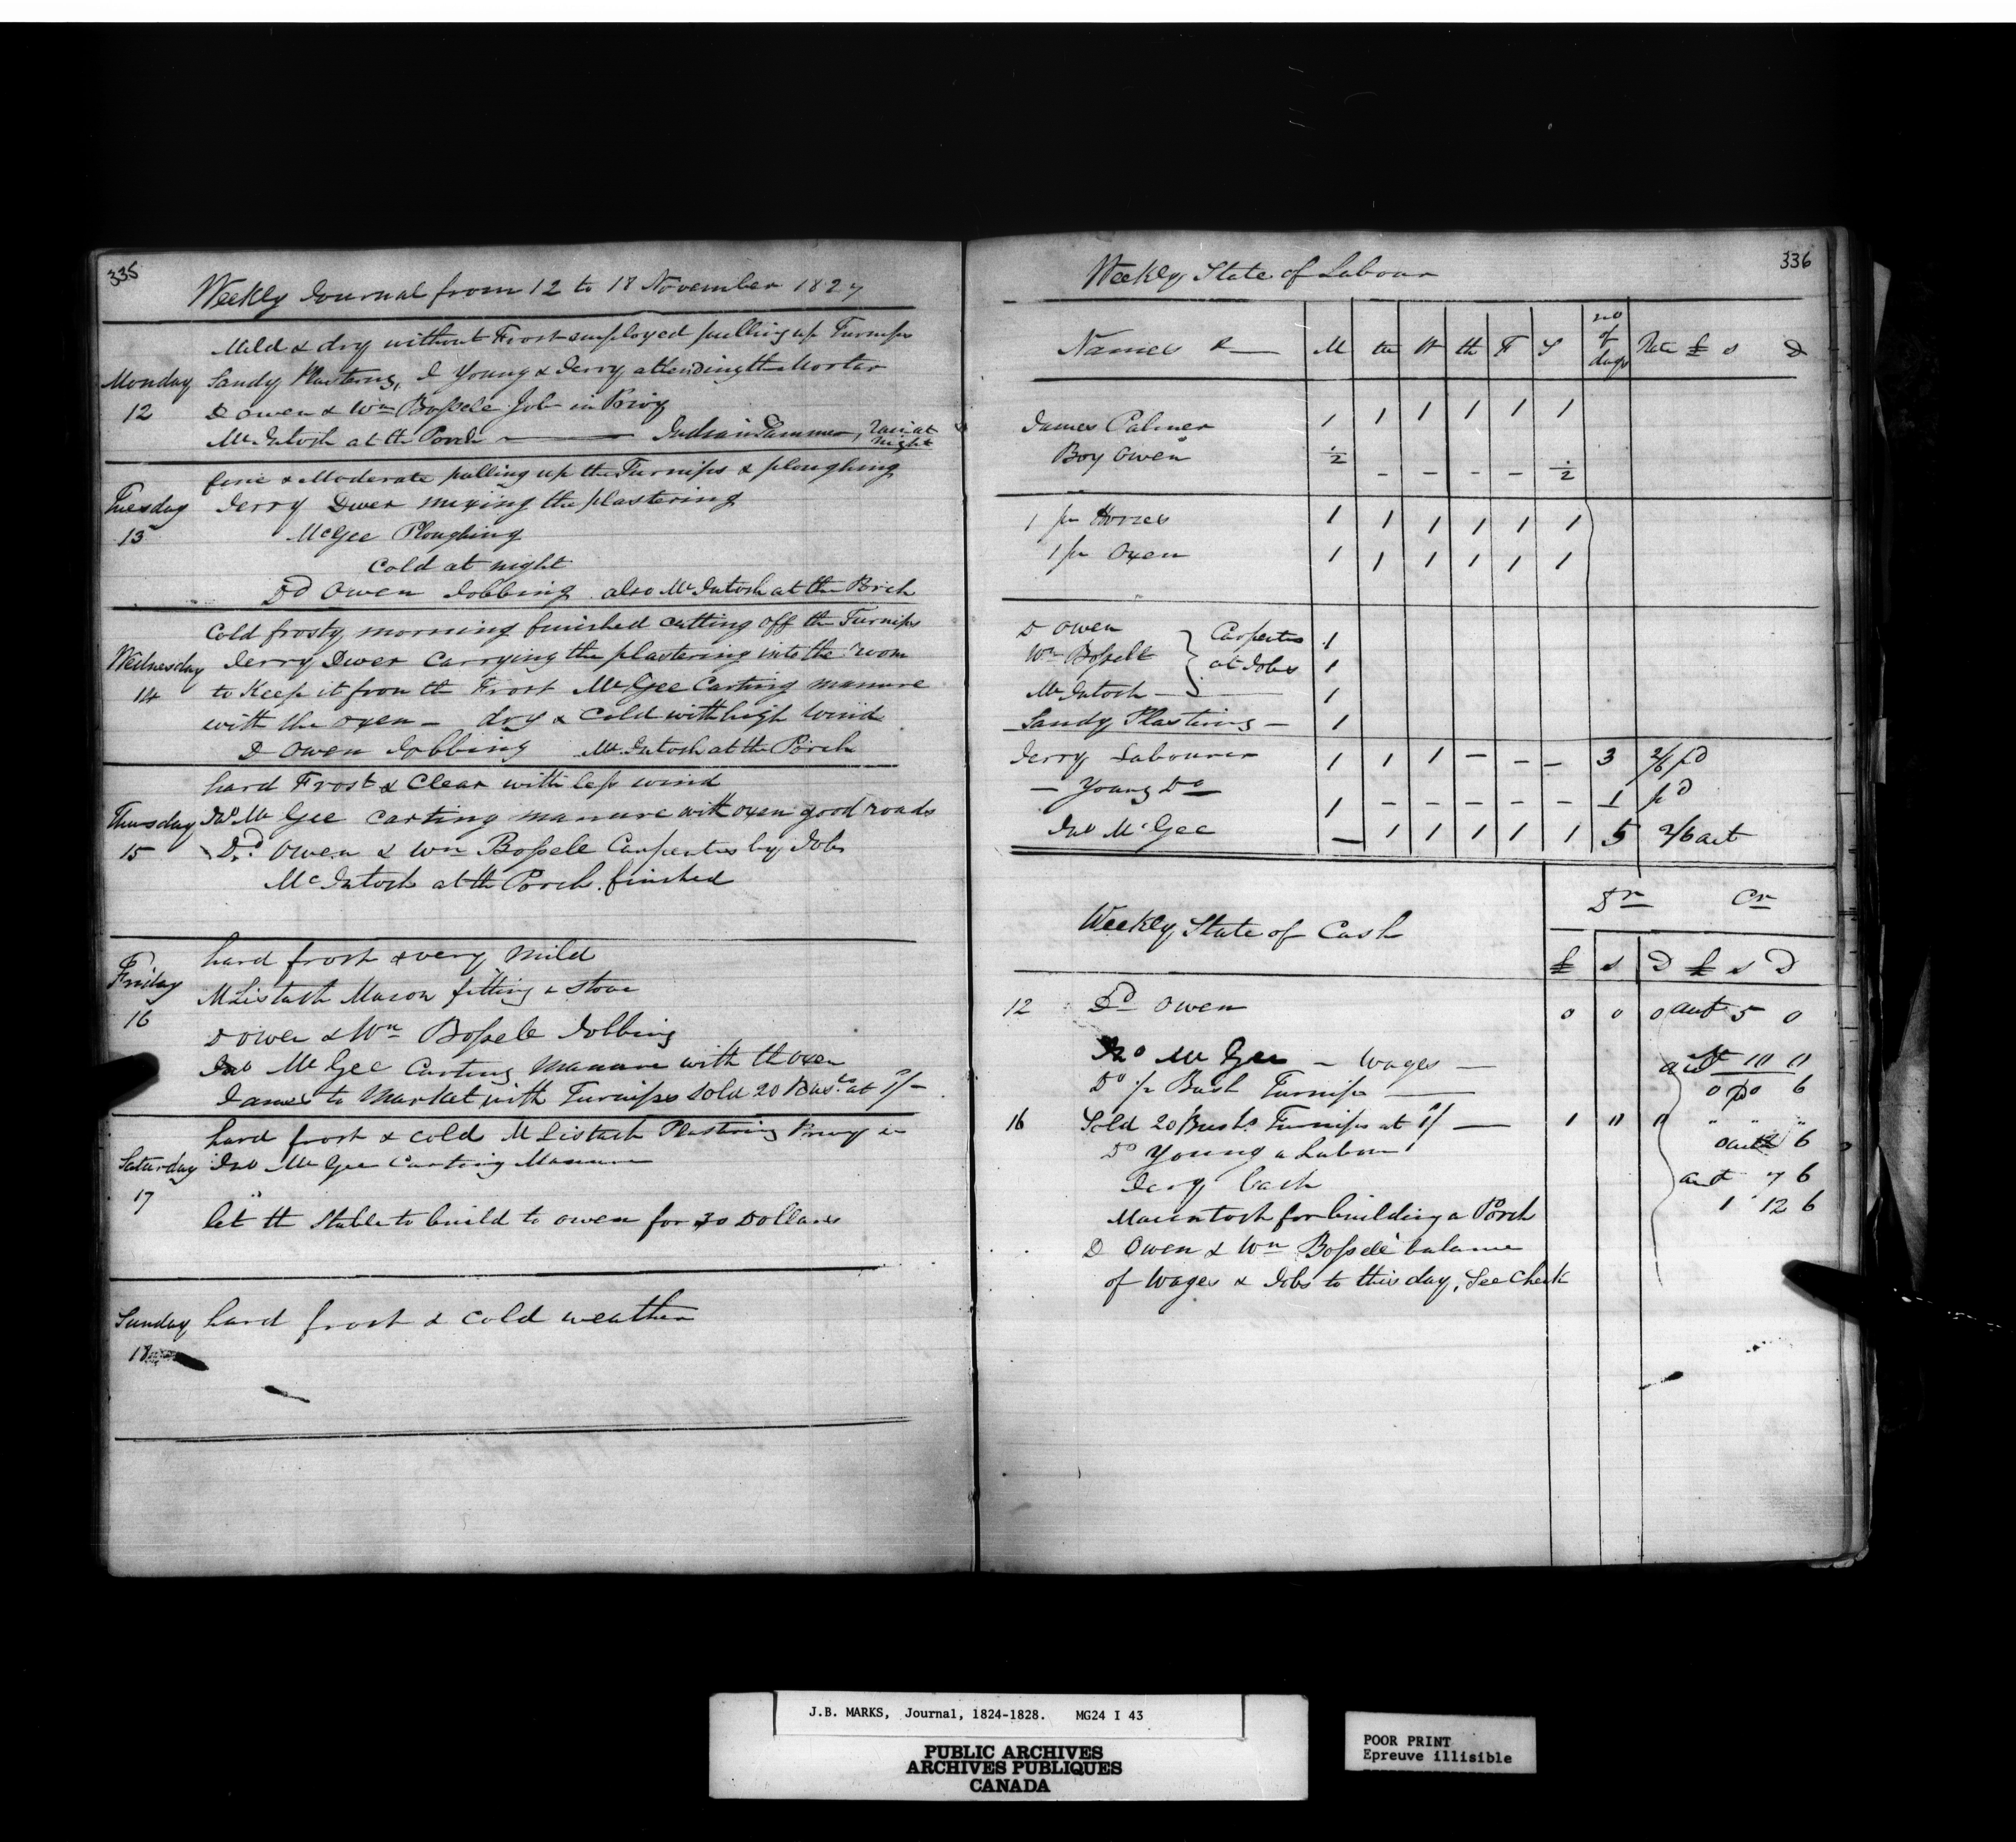 335
Weekly Journal from 12 to 18 November 1827
Mild & dry without Frost employed pulling up Turnips
Monday Sandy Plastering, J Young & Jerry attending the Mortar
12 D Owen & Wm Bossele Job in Privy
McIntosh at the Porch — Indian Summer, rain at night
fine & Moderate pulling up the Turnips & ploughing
Tuesday Jerry Dwer mixing the plastering
13 McGee Ploughing
Cold at night
Dd Owen Jobbing also McIntosh at the Porch
Cold frosty morning finished cutting off the Turnips
Wednesday Jerry Dwer Carrying the plastering into the room
14 to Keep it from the Frost McGee Carting manure
with the oxen – dry & Cold with high Wind
D Owen Jobbing McIntosh at the Porch
hard Frost & Clear with less wind
Thursday Jno Mc Gee Carting manure with oxen good roads
15 Dd Owen & Wm Bossele Carpenters by Jobs
McIntosh at the Porch finished
hard frost & very mild
Friday McListash Mason fitting a stove
16
D Owen & Wm Bossele Jobbing
Jno McGee Carting Manure with the oxen
James to Market with Turnips Sold 20 Bus.ls at 1/–
hard frost & cold McListash Plastering Privy
Saturday Jno McGee Carting Manure
17
let the Stable to build to Owen for 30 Dollars
Sunday hard frost & cold weather
18
336
Weekly State of Labour
Names & — M tu W th F S no of days Rate £ s D
James Palmer 1 1 1 1 1 1
Boy Owen ½ – – – – ½
1 pr Horses 1 1 1 1 1 1
1 pr Oxen 1 1 1 1 1 1
D Owen } Carpenters 1
Wm Bossele } at Jobs 1
McIntosh — 1
Sandy Plastering – 1
Jerry Labourer 1 1 1 – – – 3 2/6 pd
— Young Do 1 – – – – – 1 pd
Jno McGee — 1 1 1 1 1 5 2/6 act
Dr Cr
Weekly State of Cash
£ s D £ s D
12 Dd Owen 0 0 0 5 0
Jno McGee – Wages —
Do pr Bush Turnips — 0 6
16 Sold 20 Bushs Turnips at 1/ — 1 " "
Do Young a Labour 6
Jerry Cash 7 6
Macintosh for building a Porch 1 12 6
D Owen & Wm Bossele balance
of Wages & Jobs to this day, See Check
J.B. MARKS, Journal, 1824-1828. MG24 I 43
PUBLIC ARCHIVES
ARCHIVES PUBLIQUES
CANADA
POOR PRINT
Epreuve illisible